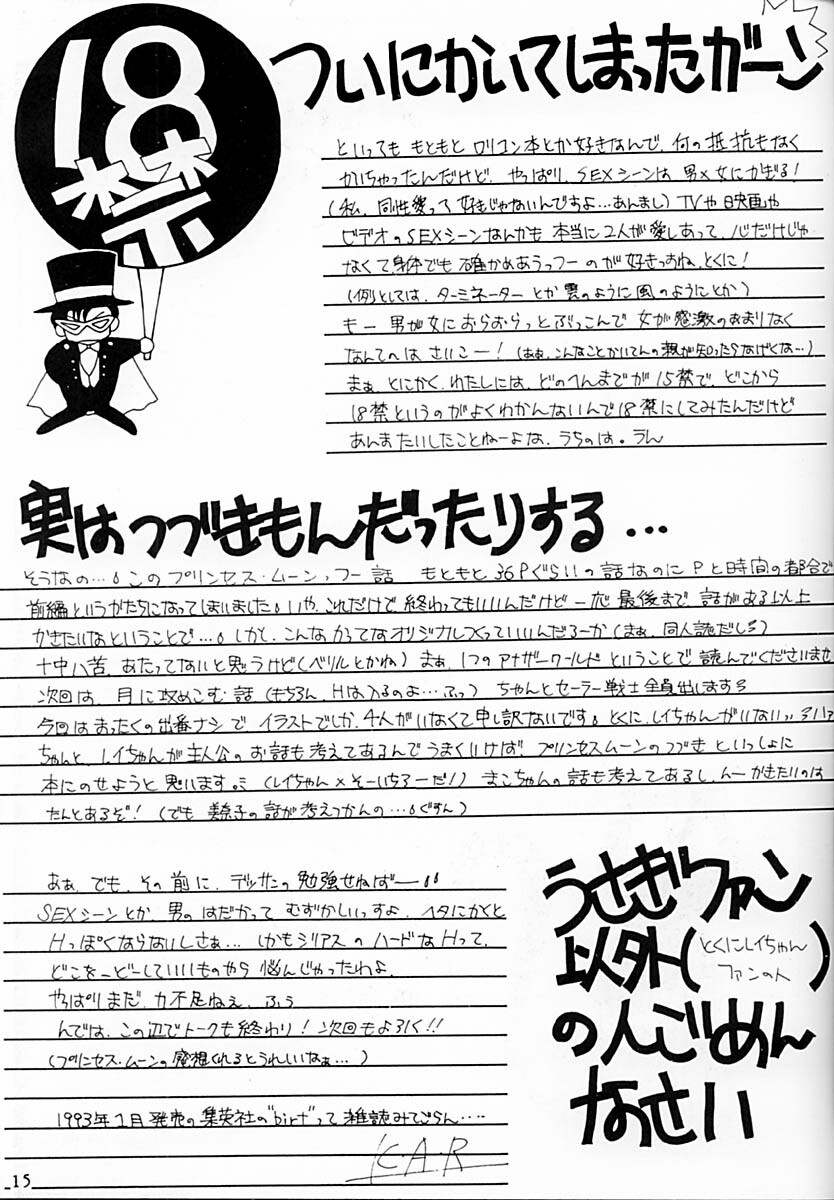 18禁
ついにかいてしまったガーン
といっても もともと ロリコン本とか好きなんで、何の抵抗もなく
かいちゃったんだけど、やっぱり、SEXシーンは 男×女にかぎる!
(私、同性愛って好きじゃないんですよ…あんまし) TVや映画や
ビデオのSEXシーンなんかも 本当に2人が愛しあって、心だけじゃ
なくて身体でも 確かめあうっフーのが好きっすね、とくに!
(例としては、ターミネーターとか 雲のように風のようにとか)
もー 男が女におらおらっとぶっこんで 女が感激のあまりなく
なんてのは さいこー! (あぁ、こんなことかいてんの親が知ったらなげくな…)
まぁ、とにかく、わたしには、どのへんまでが15禁で、どこから
18禁というのがよくわかんないんで18禁にしてみたんだけど
あんまたいしたことねーよな、うちのは。うん
実はつづきもんだったりする…
そうなの…。このプリンセス・ムーンっフー話 もともと36Pぐらいの話なのに Pと時間の都合で
前編というかたちになってしまいました。いや、これだけで 終わってもいいんだけど 一応 最後まで 話がある以上
かきたいなということで…。しかし、こんなかってなオリジナルつくっていいんだろーか(まぁ、同人誌だしる)
十中八苦、あたってないと思うけど(ベリルとかね) まぁ、1つのアナザーワールド ということで 読んでくださいませ
次回は、月に攻めこむ話 (もちろん、Hは入るのよ…ふっ) ちゃんとセーラー戦士全員出します
今回はまったくの出番ナシで イラストでしか、4人がいなくて申し訳ないです。とくに、レイちゃんがいない
ちゃんと、レイちゃんが主人公の お話も考えてあるんで うまくいけば、プリンセスムーンのつづき といっしょに
本にのせようと 思います。 (レイちゃん×そーいちろーだ!) まこちゃんの話も考えてあるし、んー かきたいのは
たんとあるぞ! (でも 美奈子の話が考えつかんの…。ぐすん)
あぁ、でも、その前に、デッサンの勉強せねばー
SEXシーンとか、男のはだかって むずかしいっすよ、ヘタにかくと
Hっぽくならないしさぁ… しかもシリアスの ハードなHって、
どこをーどーしていいものやら 悩んじゃったわよ
やっぱりまだ、力不足ねぇ、ふぅ
んでは、この辺でトークも終わり! 次回もよろしく!!
(プリンセス・ムーンの感想くれるとうれしいなぁ…)
1993年1月発売の集英社の"birt"って雑誌みてごらん…
K・A・R
うさぎファン
以外(とくにレイちゃん
ファンの人)
の人ごめん
なさい
15